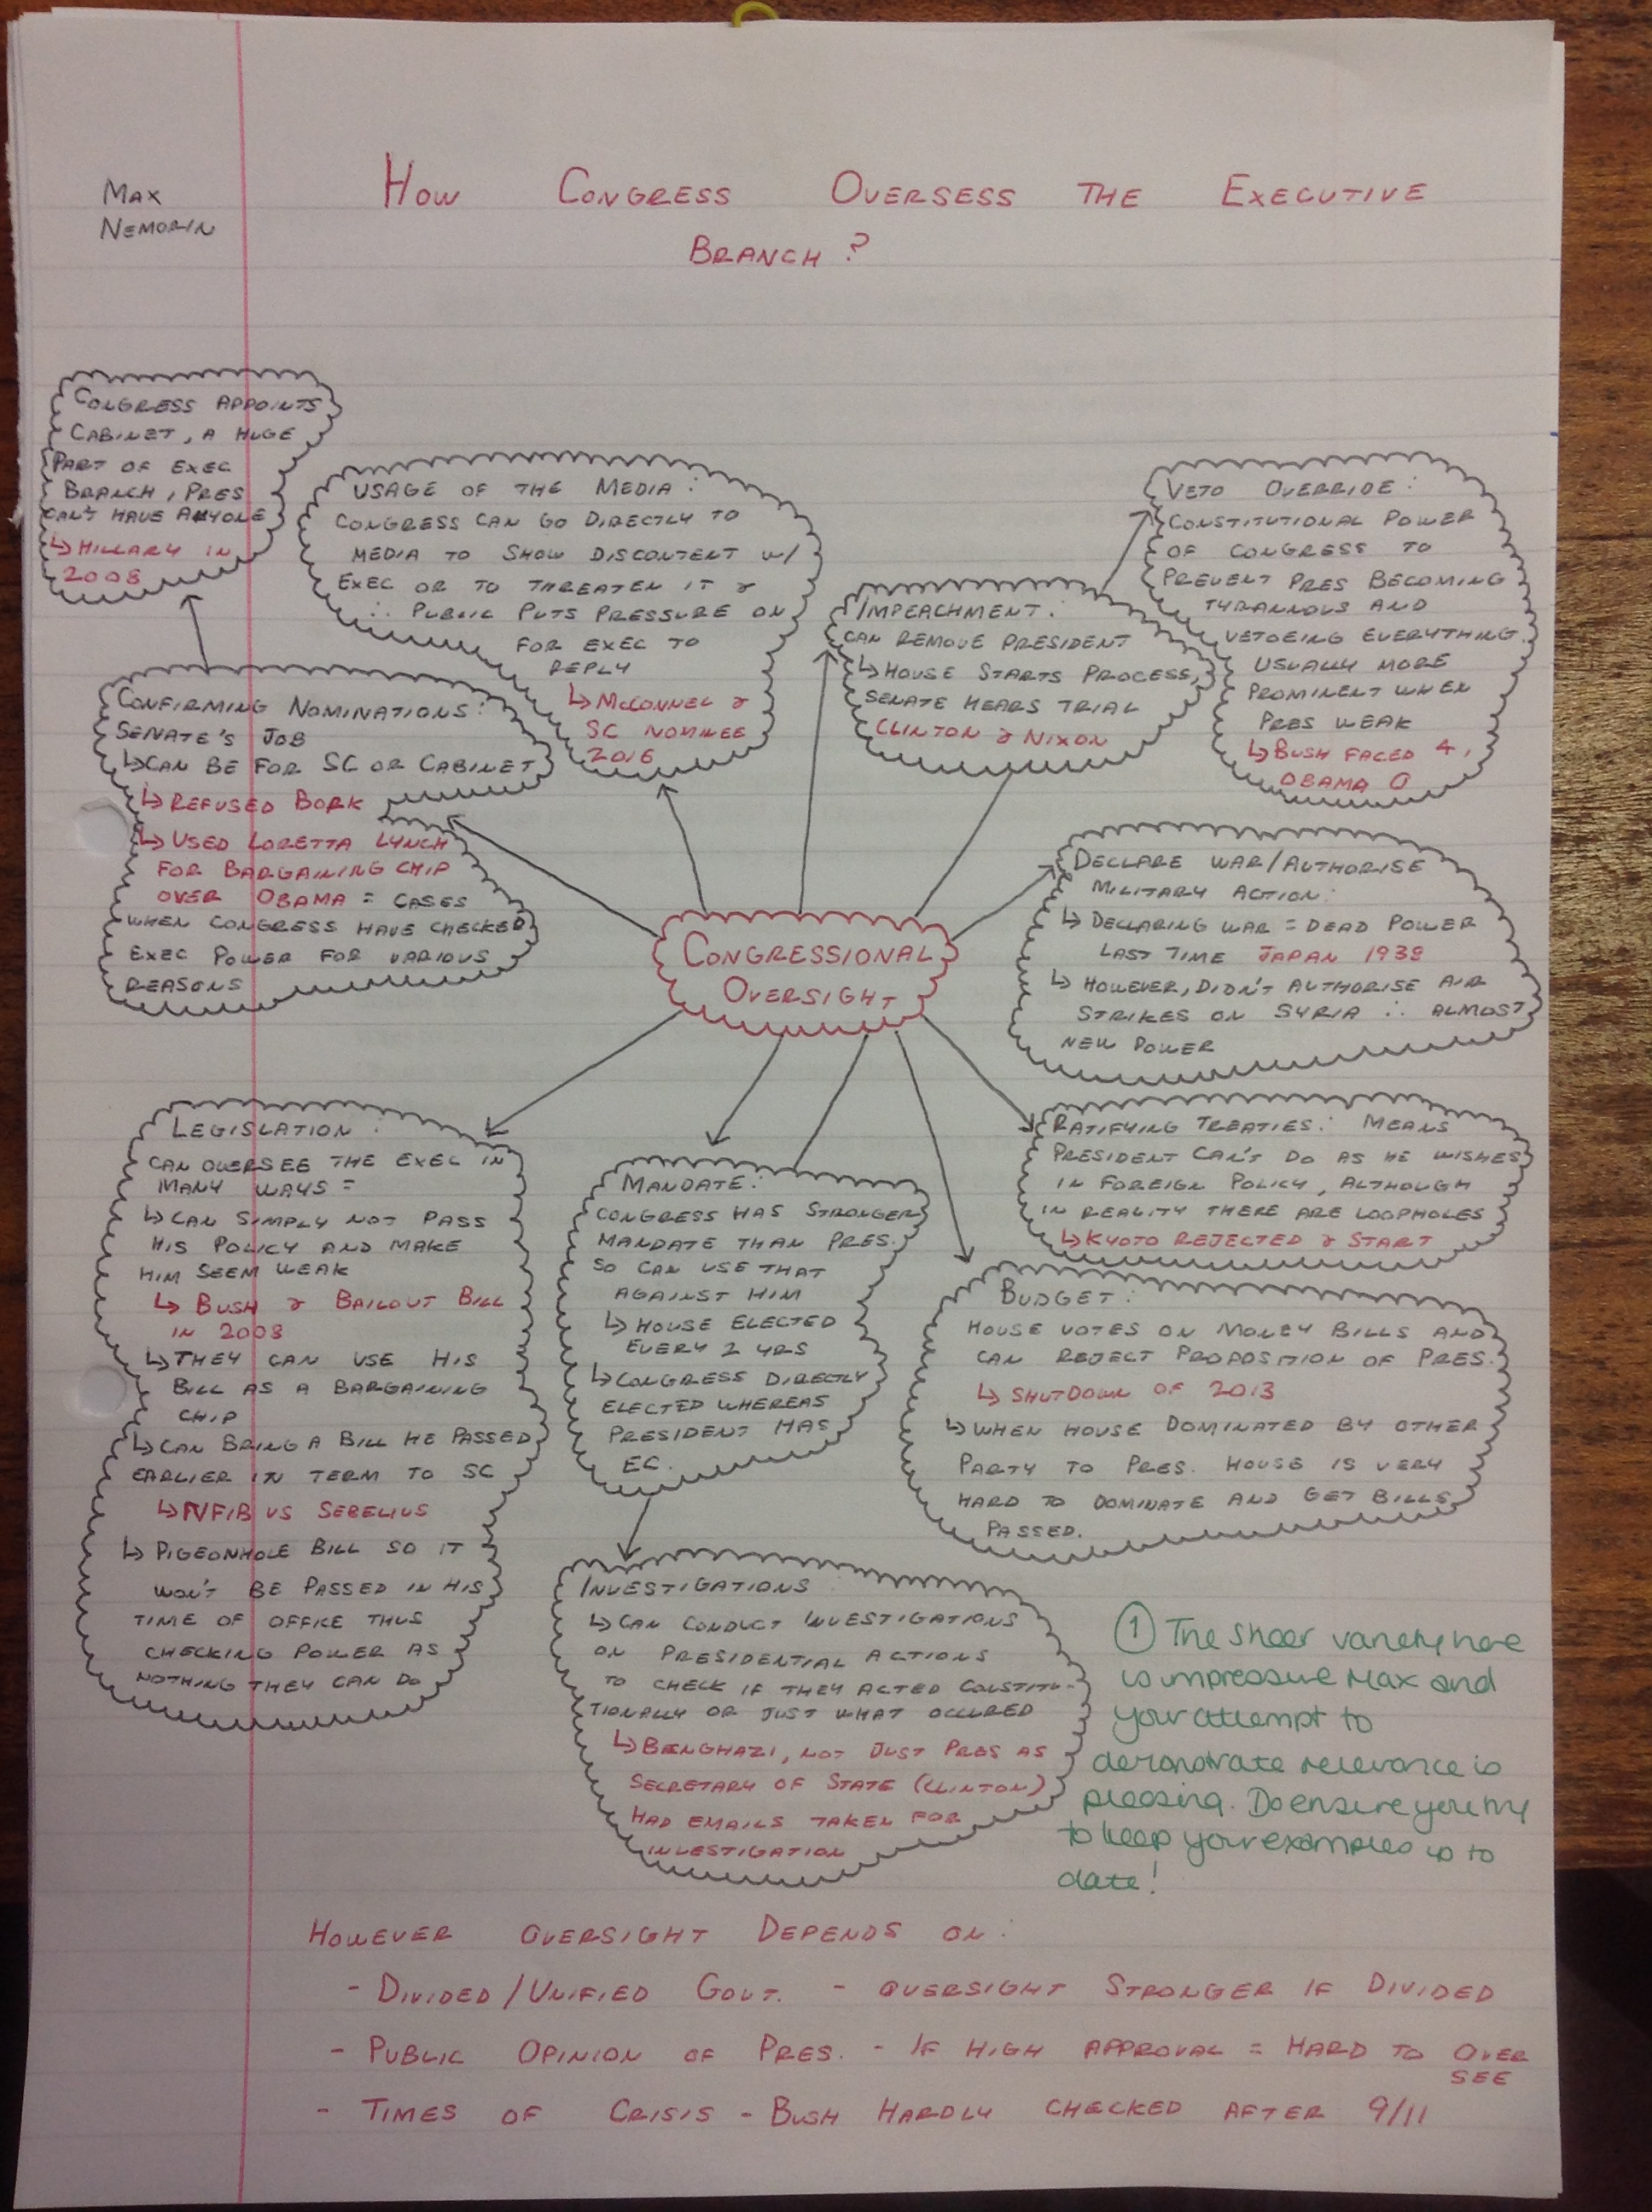 MAX
NEMORIN
HOW CONGRESS OVERSESS THE EXECUTIVE
BRANCH?
CONGRESS APPOINTS
CABINET, A HUGE
PART OF EXEC
BRANCH, PRES
CAN'T HAVE ANYONE
↳ HILLARY IN
2008
USAGE OF THE MEDIA:
CONGRESS CAN GO DIRECTLY TO
MEDIA TO SHOW DISCONTENT W/
EXEC OR TO THREATEN IT &
∴ PUBLIC PUTS PRESSURE ON
FOR EXEC TO
REPLY
↳ MCCONNEL &
SC NOMINEE
2016
IMPEACHMENT:
CAN REMOVE PRESIDENT
↳ HOUSE STARTS PROCESS,
SENATE HEARS TRIAL
CLINTON & NIXON
VETO OVERRIDE:
CONSTITUTIONAL POWER
OF CONGRESS TO
PREVENT PRES BECOMING
TYRANNOUS AND
VETOEING EVERYTHING.
USUALLY MORE
PROMINENT WHEN
PRES WEAK
↳ BUSH FACED 4,
OBAMA 0
CONFIRMING NOMINATIONS:
SENATE'S JOB
↳ CAN BE FOR SC OR CABINET
↳ REFUSED BORK
↳ USED LORETTA LYNCH
FOR BARGAINING CHIP
OVER OBAMA = CASES
WHEN CONGRESS HAVE CHECKED
EXEC POWER FOR VARIOUS
REASONS
CONGRESSIONAL
OVERSIGHT
DECLARE WAR/AUTHORISE
MILITARY ACTION:
↳ DECLARING WAR = DEAD POWER
LAST TIME JAPAN 1939
↳ HOWEVER, DIDN'T AUTHORISE AIR
STRIKES ON SYRIA ∴ ALMOST
NEW POWER
RATIFYING TREATIES: MEANS
PRESIDENT CAN'T DO AS HE WISHES
IN FOREIGN POLICY, ALTHOUGH
IN REALITY THERE ARE LOOPHOLES
↳ KYOTO REJECTED & START
LEGISLATION:
CAN OVERSEE THE EXEC IN
MANY WAYS =
↳ CAN SIMPLY NOT PASS
HIS POLICY AND MAKE
HIM SEEM WEAK
↳ BUSH & BAILOUT BILL
IN 2008
↳ THEY CAN USE HIS
BILL AS A BARGAINING
CHIP
↳ CAN BRING A BILL HE PASSED
EARLIER IN TERM TO SC
↳ NFIB VS SEBELIUS
↳ PIGEONHOLE BILL SO IT
WON'T BE PASSED IN HIS
TIME OF OFFICE THUS
CHECKING POWER AS
NOTHING THEY CAN DO
MANDATE:
CONGRESS HAS STRONGER
MANDATE THAN PRES.
SO CAN USE THAT
AGAINST HIM
↳ HOUSE ELECTED
EVERY 2 YRS
↳ CONGRESS DIRECTLY
ELECTED WHEREAS
PRESIDENT HAS
EC.
BUDGET:
HOUSE VOTES ON MONEY BILLS AND
CAN REJECT PROPOSITION OF PRES.
↳ SHUTDOWN OF 2013
↳ WHEN HOUSE DOMINATED BY OTHER
PARTY TO PRES. HOUSE IS VERY
HARD TO DOMINATE AND GET BILLS
PASSED.
INVESTIGATIONS:
↳ CAN CONDUCT INVESTIGATIONS
ON PRESIDENTIAL ACTIONS
TO CHECK IF THEY ACTED CONSTITU-
TIONALLY OR JUST WHAT OCCURED
↳ BENGHAZI, NOT JUST PRES AS
SECRETARY OF STATE (CLINTON)
HAD EMAILS TAKEN FOR
INVESTIGATION
① The sheer variety here
is impressive Max and
your attempt to
demonstrate relevance is
pleasing. Do ensure you try
to keep your examples up to
date!
HOWEVER OVERSIGHT DEPENDS ON:
- DIVIDED/UNIFIED GOVT. - OVERSIGHT STRONGER IF DIVIDED
- PUBLIC OPINION OF PRES. - IF HIGH APPROVAL = HARD TO OVER
SEE
- TIMES OF CRISIS - BUSH HARDLY CHECKED AFTER 9/11